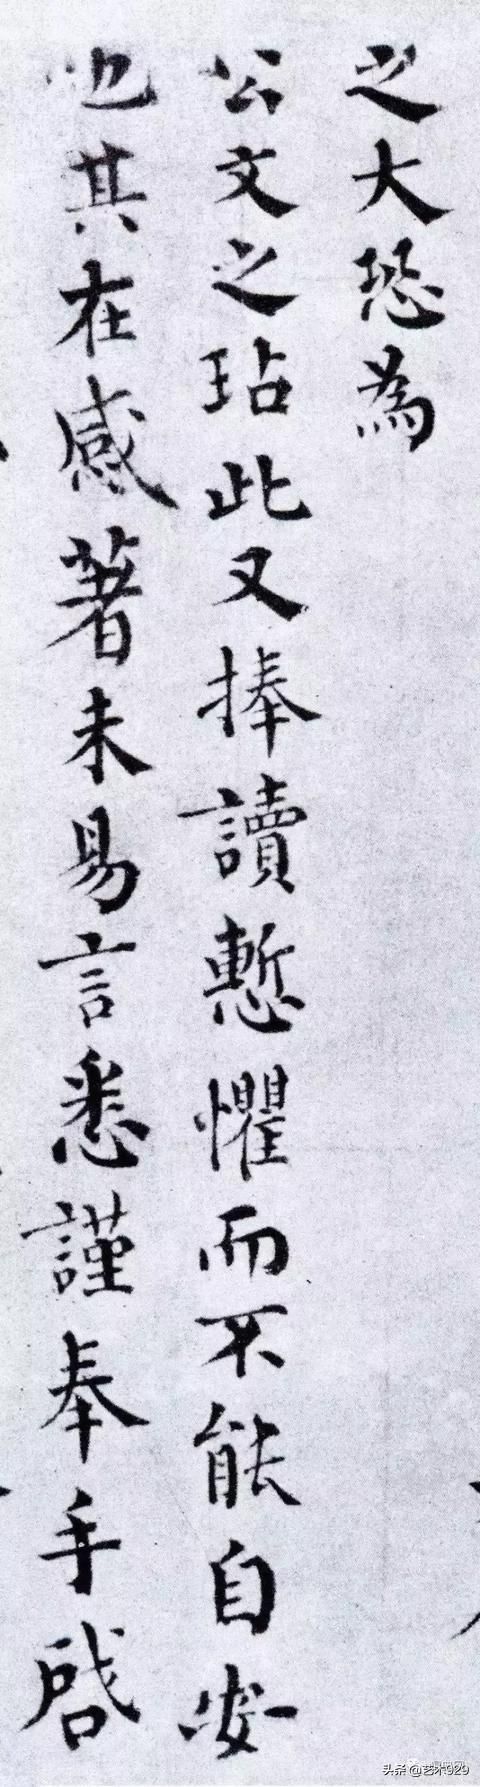 之大恐為
公文之玷此又捧讀慙懼而不能自安
也其在感著未易言悉謹奉手啓
头条@艺术929